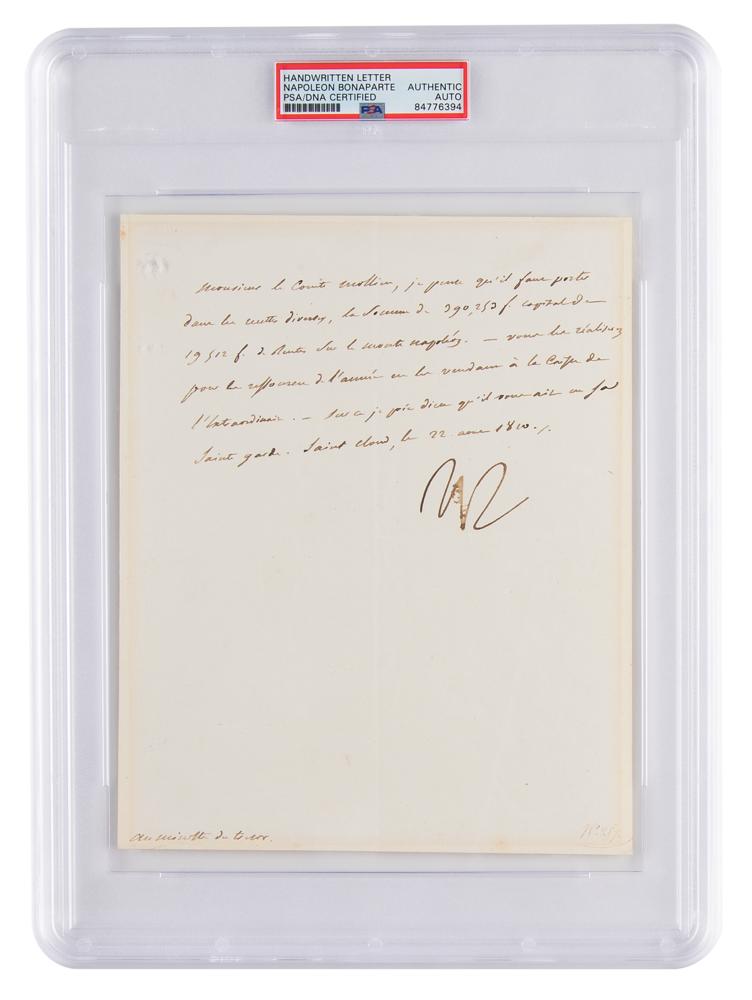 HANDWRITTEN LETTER
NAPOLEON BONAPARTE AUTHENTIC
PSA/DNA CERTIFIED AUTO
PSA 84776394
Monsieur le Comte Mollien, je pense qu'il faut porter
dans les recettes diverses, la Somme de 390,253 f. capital de
19512 f. de Rentes Sur le monte napoléon. — vous les réaliserez
pour les ressources de l'année en les vendant à la Caisse de
l'Extraordinaire. — Sur ce je prie dieu qu'il vous ait en sa
Sainte garde. Saint Cloud, le 22 aout 1810.
Np
au ministre du trésor.